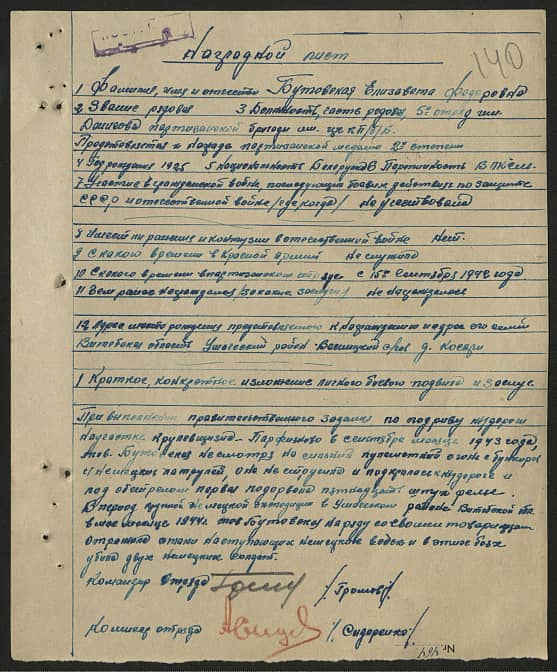 140
Наградной лист
1 Фамилия, имя и отчество Бутовская Елизавета Федоровна
2 Звание рядовая 3 Должность, часть рядовая, 5й отряд им.
Данукалова партизанской бригады им. ЦК КП/б/Б.
Представляется к награде партизанской медалью 2й степени
4 Год рождения 1925 5 Национальность Белоруска 6 Партийность ВЛКСМ
7 Участие в гражданской войне, последующих боевых действиях по защите
СССР и отечественной войне /где, когда/ Не участвовала
8 Имеет ли ранения и контузии в отечественной войне Нет.
9 С какого времени в Красной армии Не служила
10 С какого времени в партизанском отряде с 15го Сентября 1942 года
11 Чем ранее награждалась /за какие заслуги/ Не награждалась
12 место рождения представляемого к награждению и адрес его семьи
Витебская область Ушачский район Веницкий с/сов д. Косари
1 Краткое, конкретное изложение личного боевого подвига и заслуг.
При выполнении правительственного задания по подрыву ж/дороги
на участке Крулевщизна - Парафьяново в сентябре месяце 1943 года,
тов. Бутовская несмотря на сильный пулеметный огонь с бункеров
и немецких патрулей, она не струсила и подползла к ж/дороге и
под обстрелом первая подорвала пятнадцать штук рельс.
В период крупной немецкой экспедиции в Ушачском районе Витебской обл.
в мае месяце 1944г. тов Бутовская наряду со своими товарищами
отражала атаки наступающих немецких войск и в этих боях
убила двух немецких солдат.
Командир отряда /Громов/
Комиссар отряда /Сидоренко/